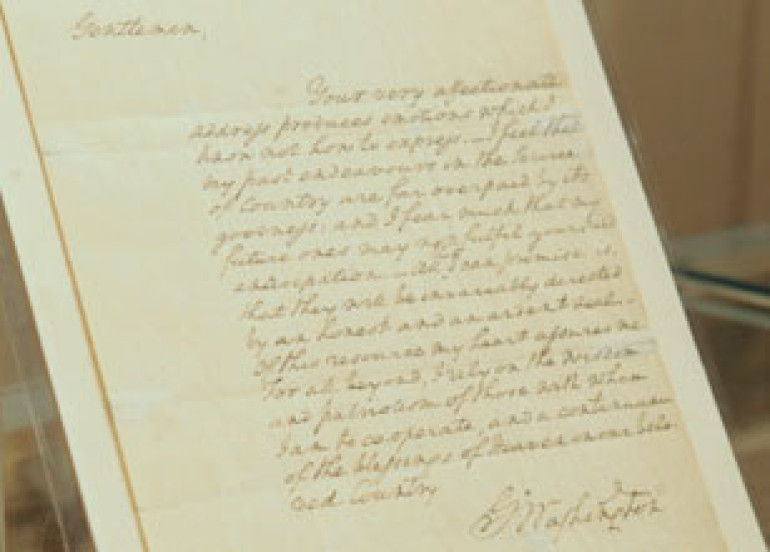 Gentlemen,
Your very affectionate
address produces emotions which I
know not how to express.— I feel that
my past endeavours in the Service
of Country are far overpaid by its
goodness: and I fear much that my
future ones may not fulfil your kind
anticipation.— All I can promise is,
that they will be invariably directed
by an honest and an ardent zeal.—
Of this resource my heart assures me
For all beyond, I rely on the wisdom
and patriotism of those with whom
I am to co-operate, and a continuance
of the blessings of Heaven on our belo
ved Country
G:Washington